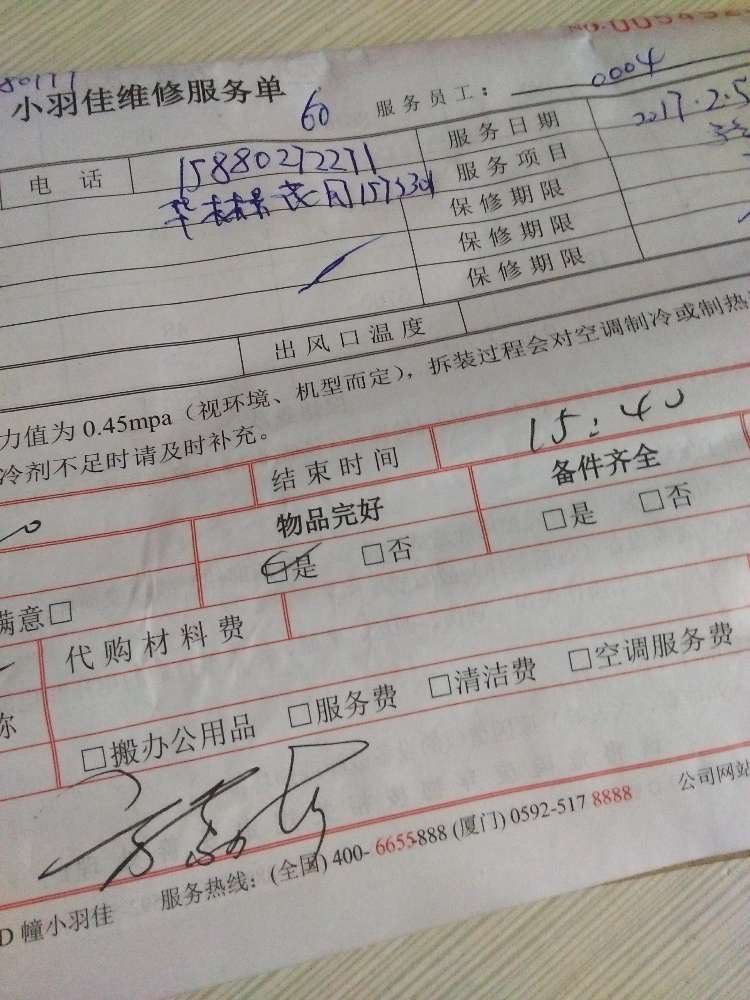 80177
小羽佳维修服务单 60 服务员工： 0004
电 话 15880272271 服务日期 2017.2.5
服务项目
保修期限
保修期限
保修期限
出风口温度
力值为 0.45mpa（视环境、机型而定），拆装过程会对空调制冷或制热
冷剂不足时请及时补充。
结束时间 15:40
物品完好 备件齐全
□是 □否 □是 □否
满意□
代购材料费
称
□搬办公用品 □服务费 □清洁费 □空调服务费
服务热线：(全国) 400-6655-888 (厦门) 0592-517 8888 公司网站
D 幢小羽佳